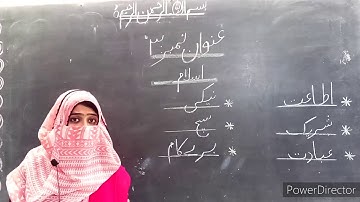 بسم اللہ الرحمن الرحیم
عنوان نمبر ۳
اسلام
* اطاعت * نیکی
* شریک * سچ
* عبادت * برے کام
PowerDirector